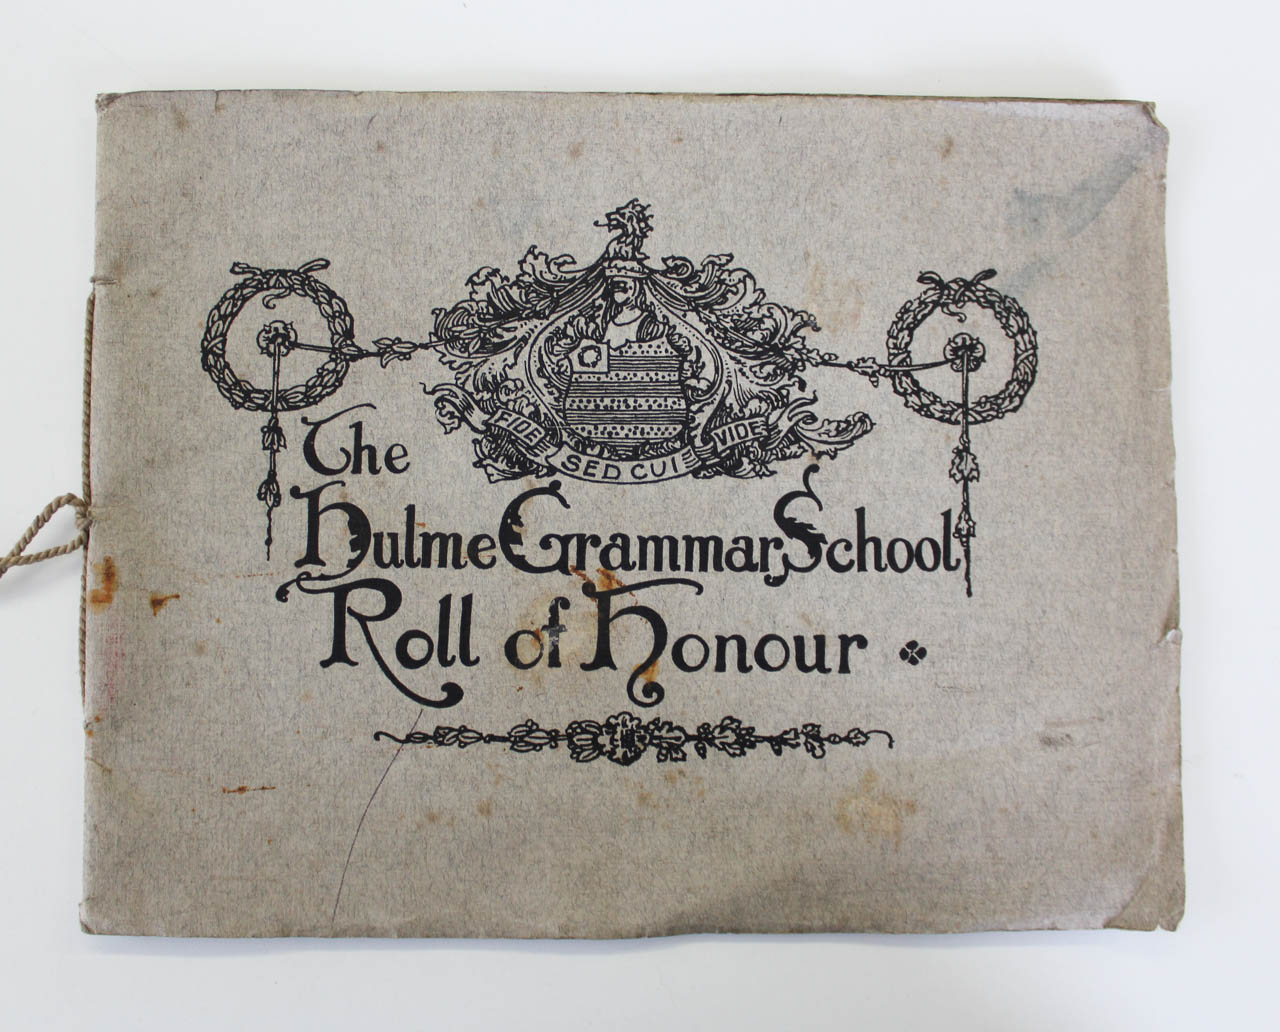 FIDE SED CUI VIDE
The
Hulme Grammar School
Roll of Honour